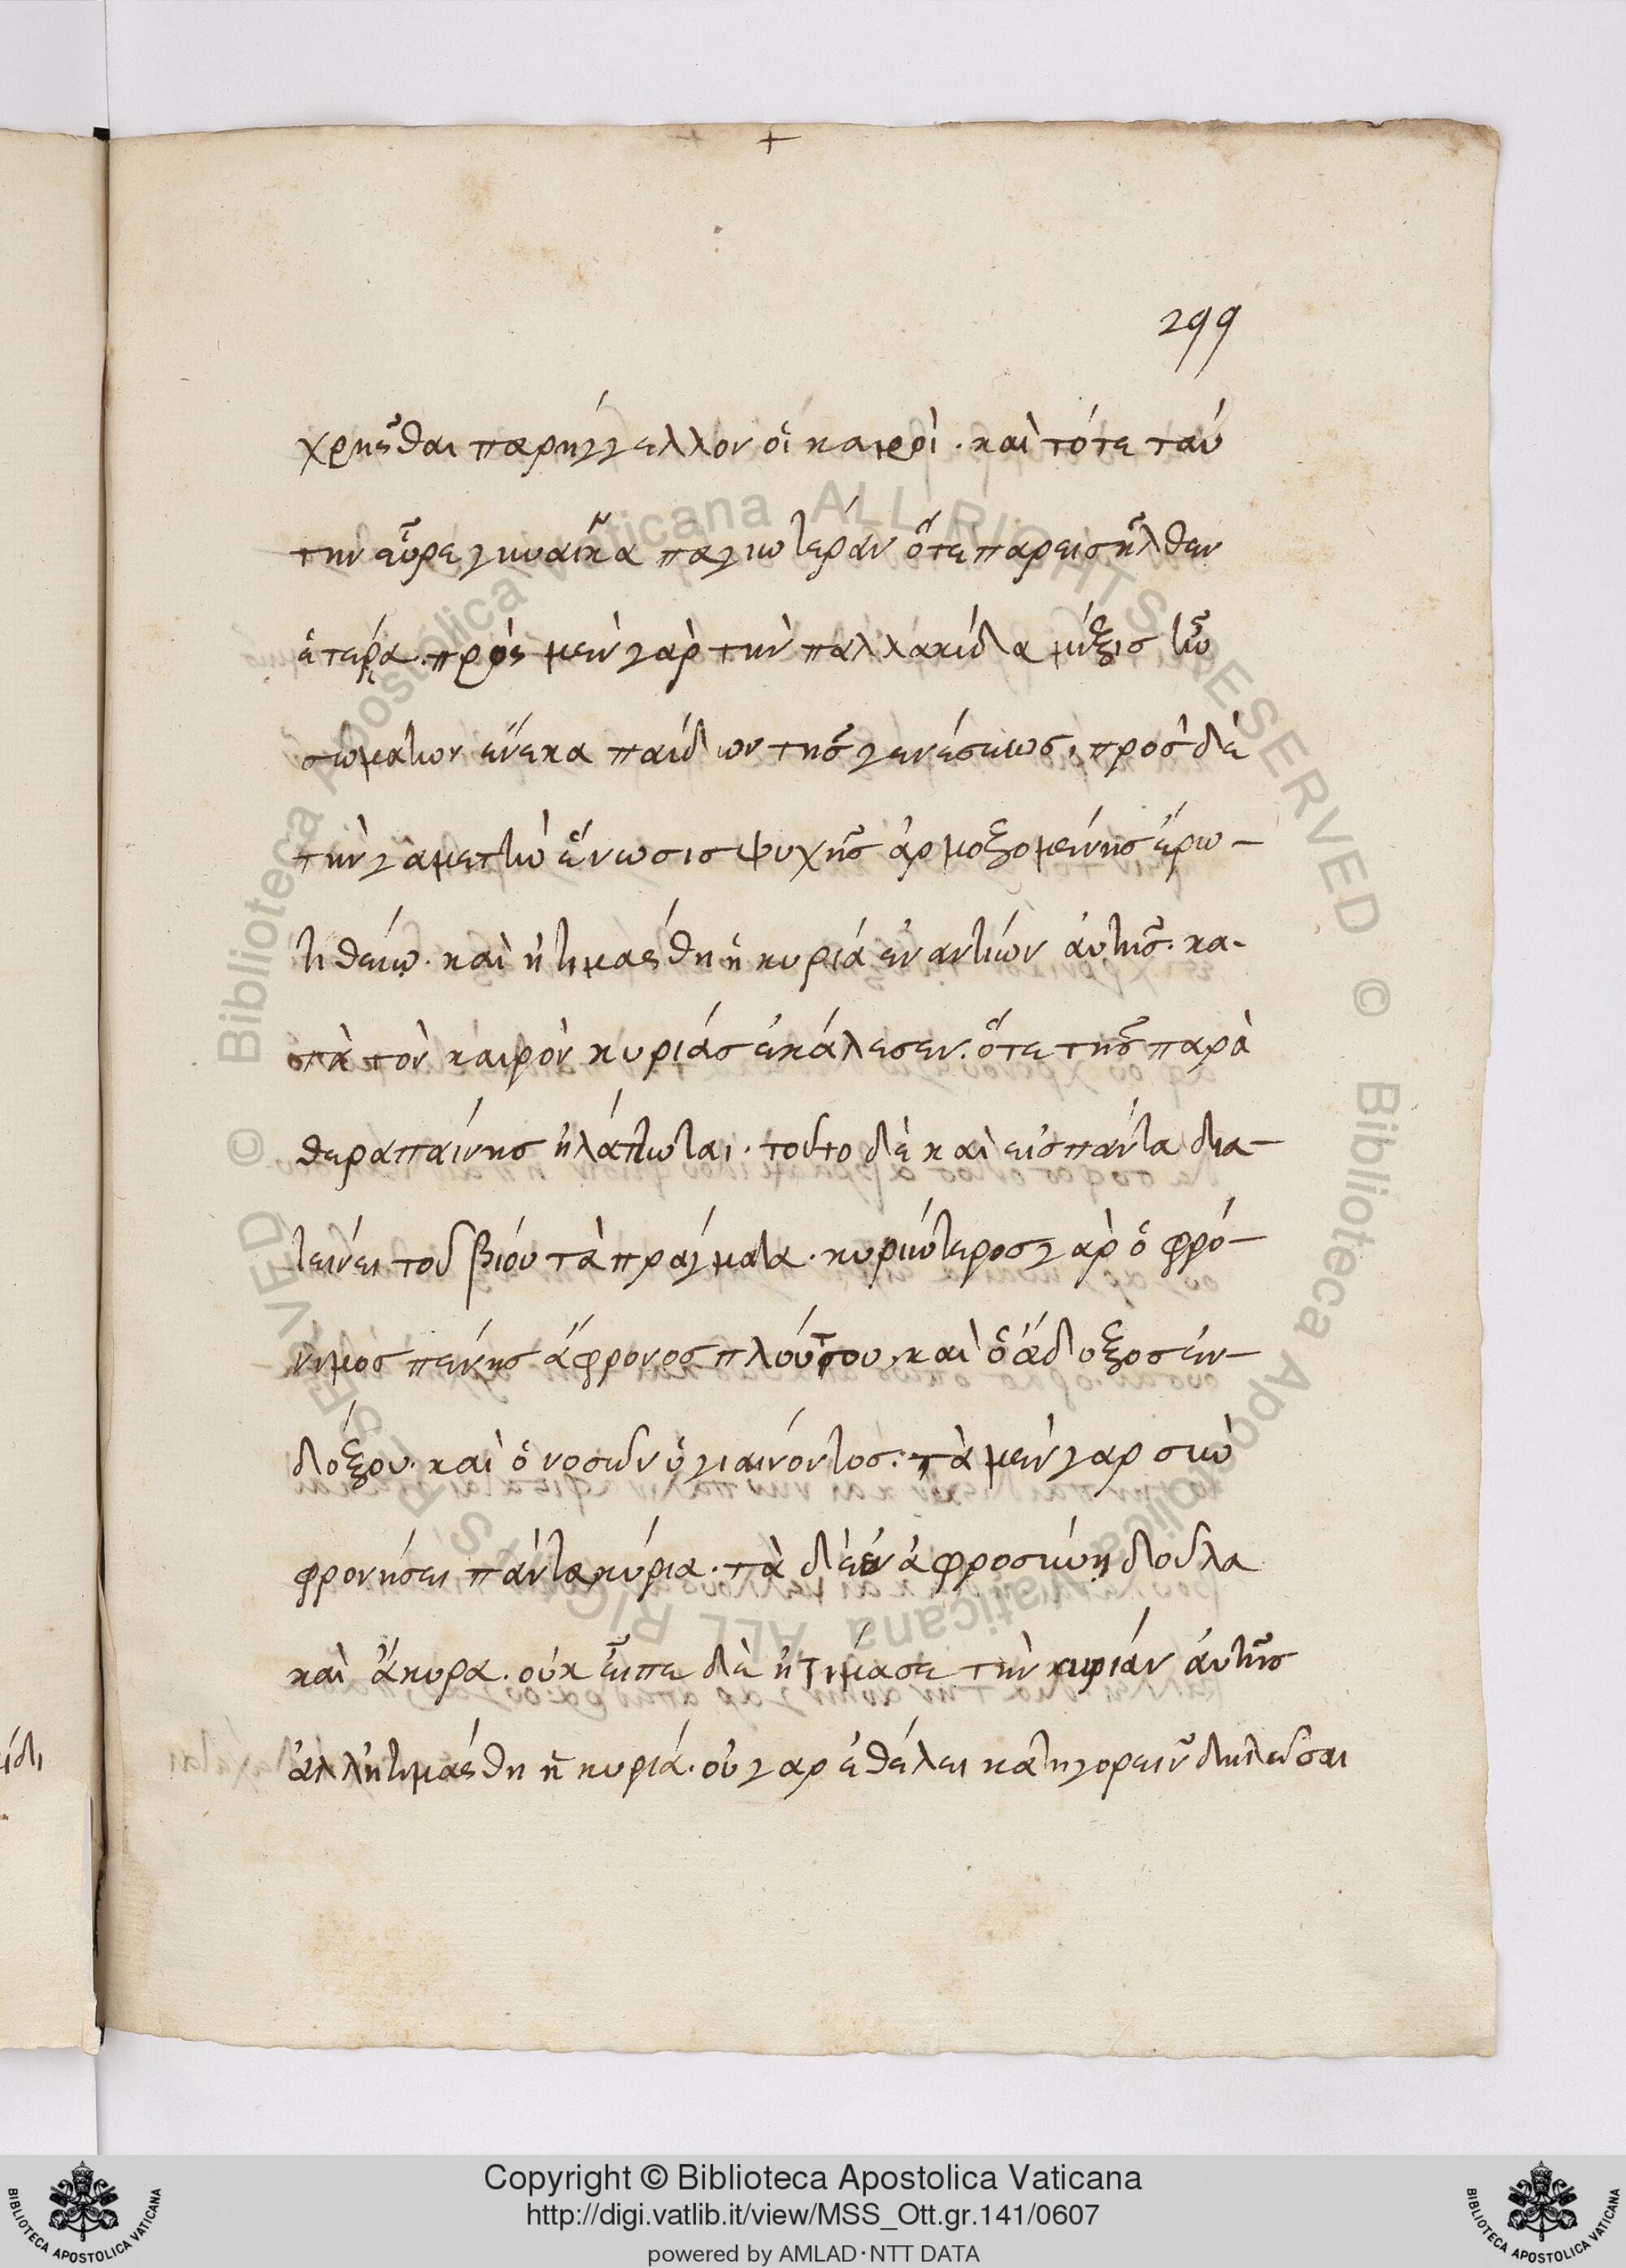 299
χρῆσθαι παρήγγελλον οἱ καιροὶ. καὶ τότε ταύ
την εὗρε γυναῖκα παγιωτέραν ὅτε παρεισῆλθεν
ἑτέρα. πρὸς μὲν γὰρ τὴν παλλακίδα μίξις ἦν
σωμάτων ἕνεκα παίδων τῆς γενέσεως, πρὸς δὲ
τὴν γαμετὴν ἕνωσις ψυχῆς ἁρμοζομένης ἔρω-
τι θείῳ. καὶ ἠτιμάσθη ἡ κυρία ἐναντίον αὐτῆς. κα-
τὰ τὸν καιρὸν κυρίας ἐκάλεσεν. ὅτε τῆς παρὰ
θεραπαίνης ἠλάττωται. τοῦτο δὲ καὶ εἰς πάντα δια-
τείνει τοῦ βίου τὰ πράγματα. κυριώτερος γὰρ ὁ φρό-
νιμος πένης ἄφρονος πλουσίου, καὶ ὁ ἄδοξος ἐν-
δόξου. καὶ ὁ νοσῶν ὑγιαίνοντος. τὰ μὲν γὰρ σὺν
φρονήσει πάντα κύρια. τὰ δὲ ἐν ἀφροσύνῃ δοῦλα
καὶ ἄκυρα. οὐκ εἶπε δὲ ἠτίμασε τὴν κυρίαν αὐτῆς
ἀλλ' ἠτιμάσθη ἡ κυρία. οὐ γὰρ ἐθέλει κατηγορεῖν δηλῶσαι
Copyright © Biblioteca Apostolica Vaticana
http://digi.vatlib.it/view/MSS_Ott.gr.141/0607
powered by AMLAD·NTT DATA
BIBLIOTECA APOSTOLICA VATICANA
BIBLIOTECA APOSTOLICA VATICANA
© Biblioteca Apostolica Vaticana ALL RIGHTS RESERVED © Biblioteca Apostolica Vaticana ALL RIGHTS RESERVED